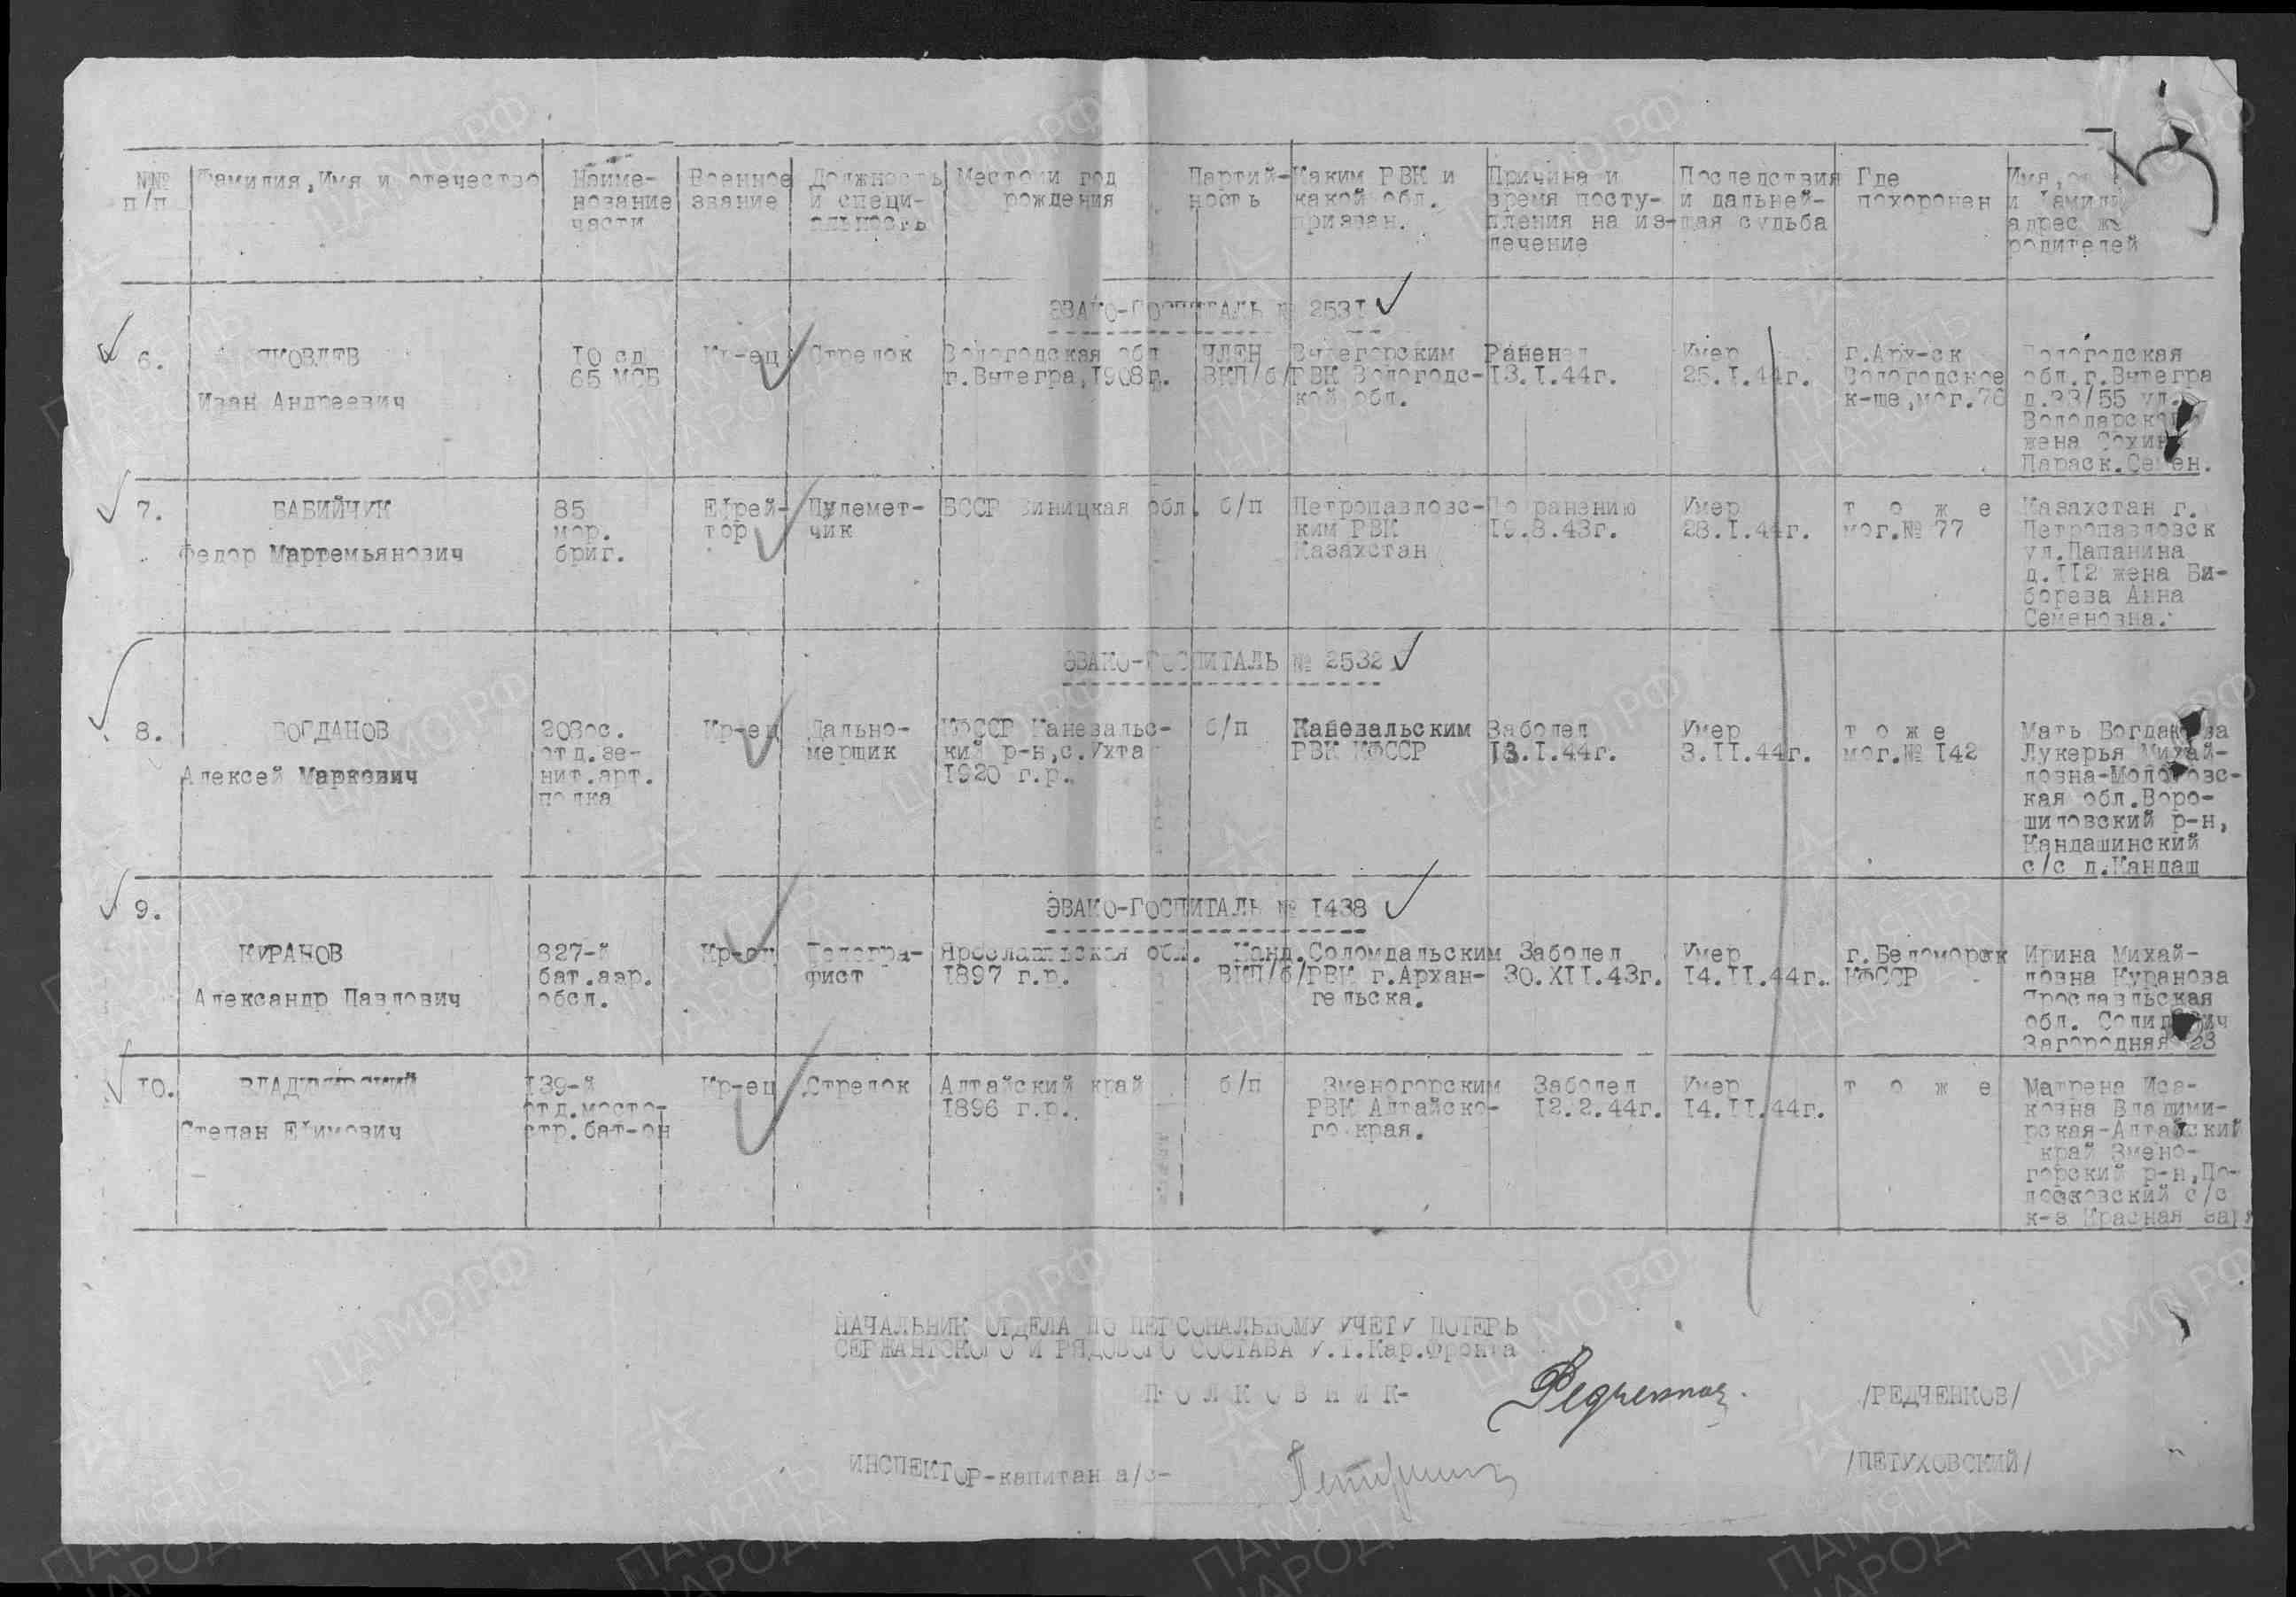 №№ п/п
Фамилия, Имя и отечество
Наиме-
нование
части
Военное
звание
Должность
и специ-
альность
Место и год
рождения
Партий-
ность
Каким РВК и
какой обл.
призван.
Причина и
время посту-
пления на из-
лечение
Последствия
и дальней-
шая судьба
Где
похоронен
Имя,
и Фамили
адрес же
родителей
ЭВАКО-ГОСПИТАЛЬ № 2531
6.
ЯКОВЛЕВ
Иван Андреевич
10 сд
65 МСБ
Кр-ец
Стрелок
Вологодская обл
г.Вытегра,1908г.
ЧЛЕН
ВКП/б/
Вытегорским
РВК Вологодс-
кой обл.
Ранен
13.1.44г.
Умер
25.1.44г.
г.Арх-ск
Вологодское
к-ще,мог.76
Вологодская
обл.г.Вытегра
д.33/55 ул.
Володарског
жена Сохин
Параск.Семен.
7.
БАБИЙЧУК
Федор Мартемьянович
85
мор.
бриг.
Ефрей-
тор
Пулемет-
чик
БССР Виницкая обл.
б/п
Петропавловс-
ким РВК
Казахстан
По ранению
19.8.43г.
Умер
28.1.44г.
т о ж е
мог.№ 77
Казахстан г.
Петропавловск
ул.Папанина
д.112 жена Би-
борева Анна
Семеновна.
ЭВАКО-ГОСПИТАЛЬ № 2532
8.
БОГДАНОВ
Алексей Маркович
208ос.
отд.зе-
нит.арт.
полка
Кр-ец
Дально-
мерщик
КФССР Каневальс-
кий р-н,с.Ухта
1920 г.р.
б/п
Каневальским
РВК КФССР
Заболел
13.1.44г.
Умер
3.11.44г.
т о ж е
мог.№ 142
Мать Богданова
Лукерья Михай-
ловна-Молотовс-
кая обл.Воро-
шиловский р-н,
Кандашинский
с/с д.Кандаш
9.
ЭВАКО-ГОСПИТАЛЬ № 1438
КУРАНОВ
Александр Павлович
827-й
бат.аэр.
обсл.
Кр-ец
Телегра-
фист
Ярославльская обл.
1897 г.р.
Канд.
ВКП/б/
Соломдальским
РВК г.Архан-
гельска.
Заболел
30.XII.43г.
Умер
14.11.44г.
г.Беломорск
КФССР
Ирина Михай-
ловна Куранова
Ярославльская
обл.
Загородняя 23
10.
Степан Ефимович
139-й
отд.мосто-
стр.бат-он
Кр-ец
Стрелок
Алтайский край
1896 г.р.
б/п
Зменогорским
РВК Алтайско-
го края.
Заболел
12.2.44г.
Умер
14.11.44г.
т о ж е
Матрена Иса-
ковна Владими-
рская-Алтайский
край Змено-
горский р-н,
с/с
к-з Красная заря
НАЧАЛЬНИК ОТДЕЛА ПО ПЕРСОНАЛЬНОМУ УЧЕТУ ПОТЕРЬ
СЕРЖАНТСКОГО И РЯДОВОГО СОСТАВА У.Т.Кар.Фронта
П О Л К О В Н И К-
/РЕДЧЕНКОВ/
ИНСПЕКТОР-капитан а/с-
/ПЕТУХОВСКИЙ/
ЦАМО.РФ
ПАМЯТЬ
НАРОДА